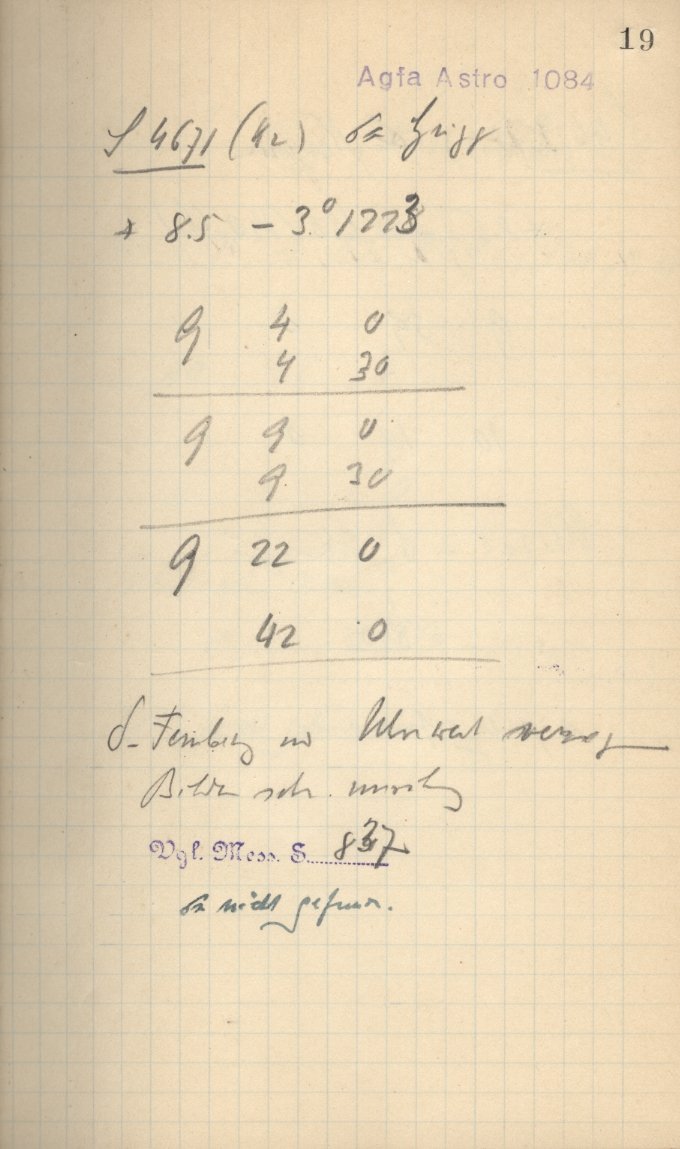 19
Agfa Astro 1084
S 4671 (Kz) Grigg
* 8.5 - 3.° 1223
9 4 0
4 30
9 9 0
9 30
9 22 0
42 0
Uhrwerk
Bilder sehr unruhig
Vgl. Mess. S. 837
nicht gefund.